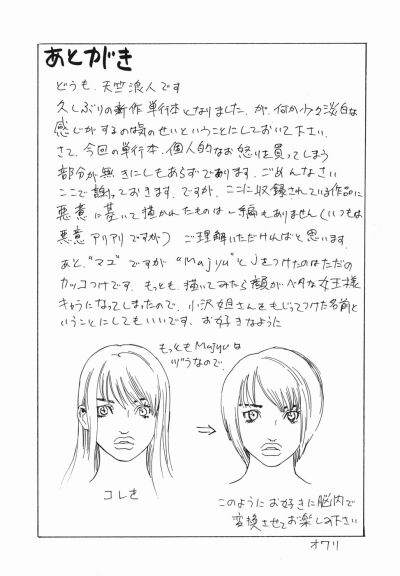 あとがき
どうも、天竺浪人です
久しぶりの新作単行本となりました、が、何か少々淡白な
感じがするのは気のせいということにしておいて下さい。
さて、今回の単行本、個人的なお怒りを買ってしまう
部分が無きにしもあらずであります。ごめんなさい
ここで謝っておきます。ですが、ここに収録されている作品に
悪意に基いて描かれたものは一編もありません(いつもは
悪意アリアリですが) ご理解いただければと思います。
あと、“マユ”ですが“Majyu”とJをつけたのはただの
カッコつけです。もっとも、描いてみたら顔がベタな女王様
キャラになってしまったので、小沢姐さんをもじってつけた名前と
いうことにしてもいいです。お好きなように
もっともMajyuな
ヅラなので
コレを
このようにお好きに脳内で
変換させてお楽しみ下さい
オワリ